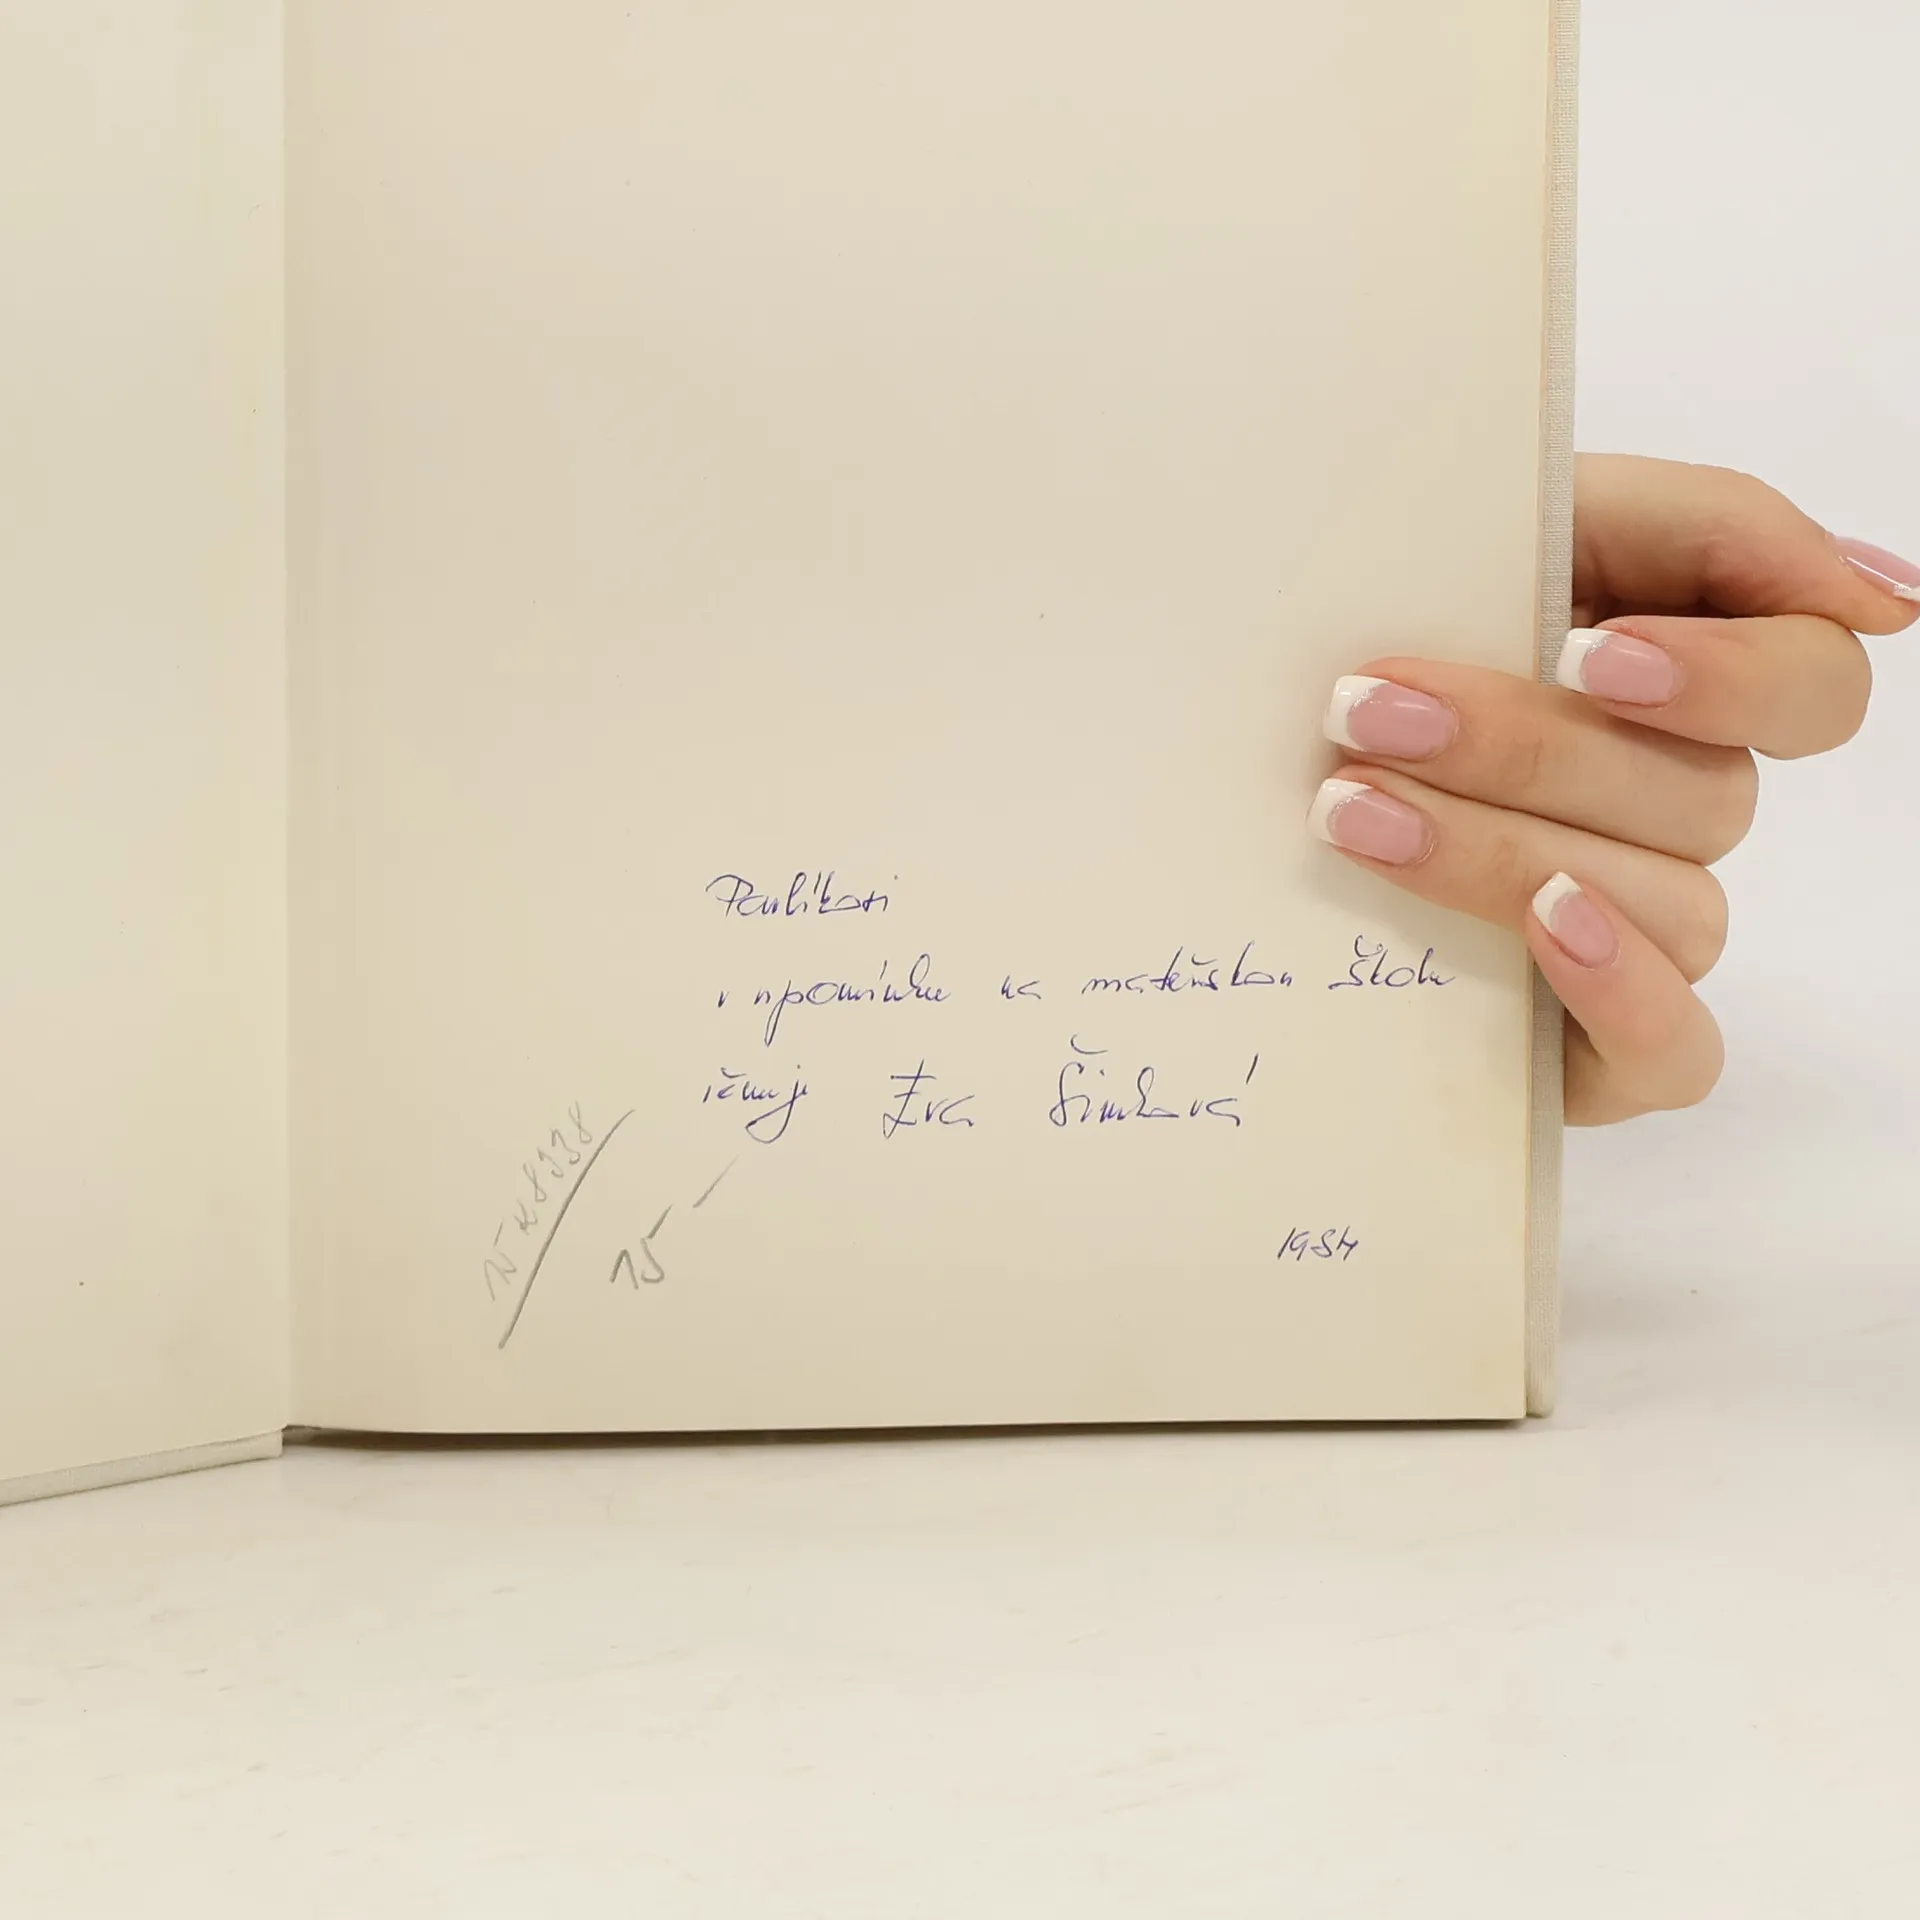 Pavlíkovi
v upomínku na mateřskou školu
věnuje Eva Šimková
1984
15 K 8938
15 -